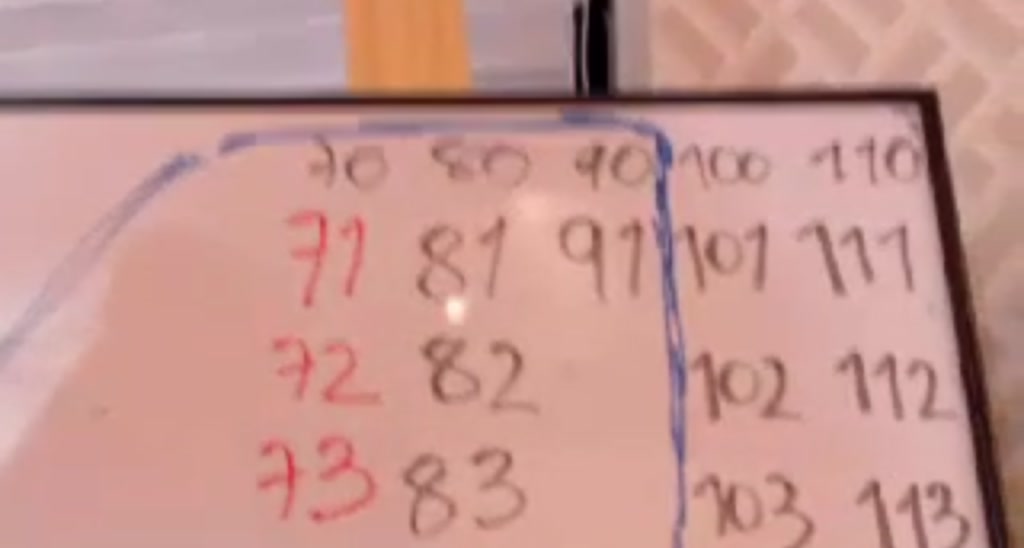 70 80 90 100 110
71 81 91 101 111
72 82 102 112
73 83 103 113